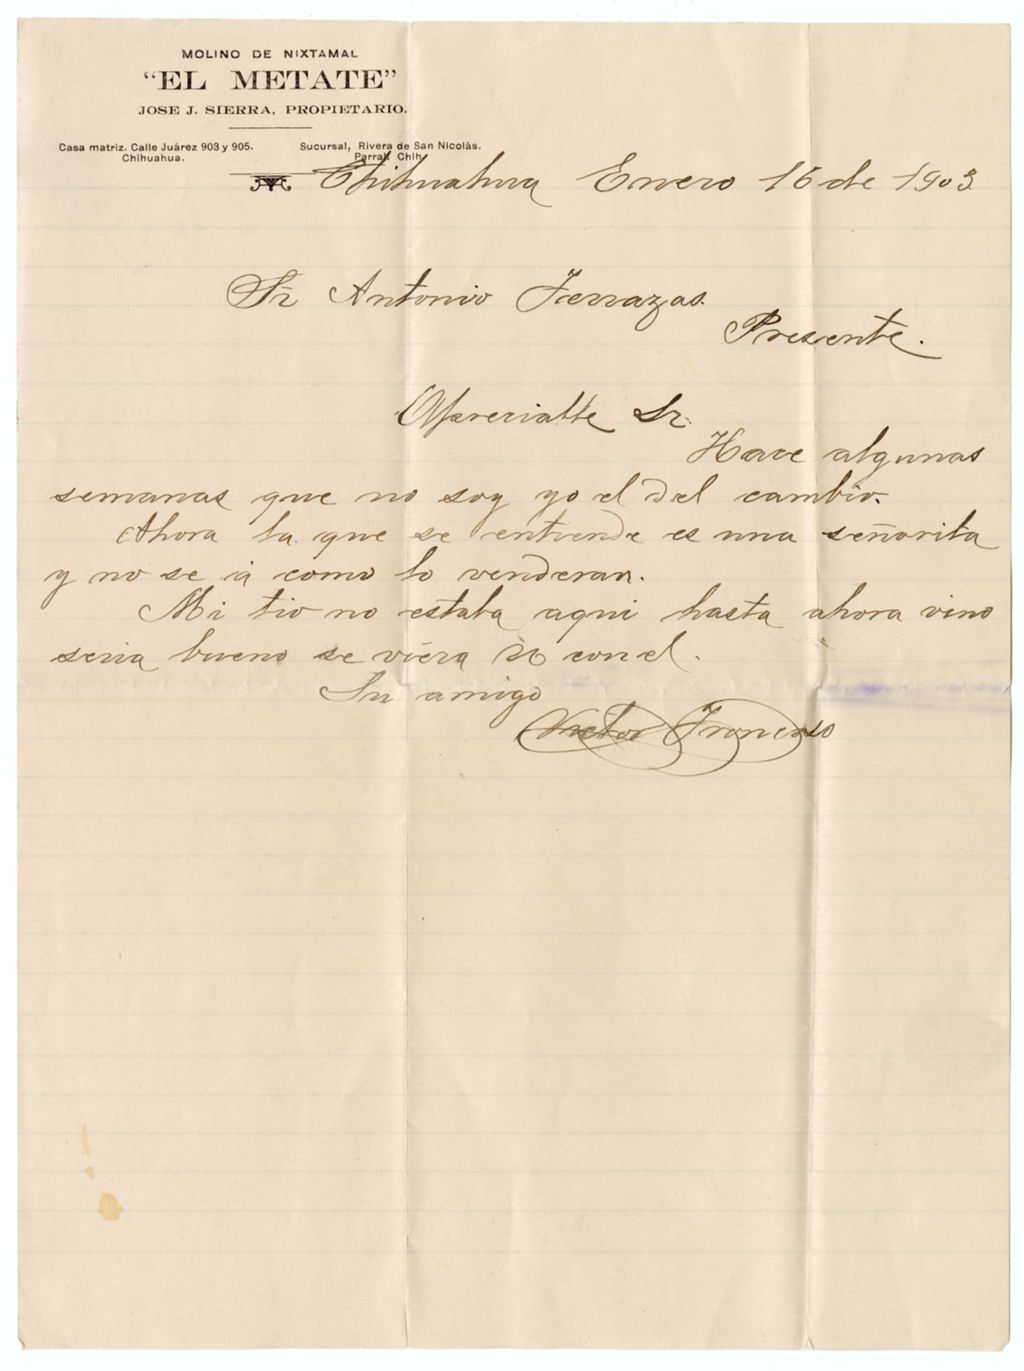 MOLINO DE NIXTAMAL
"EL METATE"
JOSE J. SIERRA, PROPIETARIO.
Casa matriz. Calle Juárez 903 y 905.
Chihuahua.
Sucursal, Rivera de San Nicolás.
Parral Chih.
Chihuahua Enero 16 de 1903
Sr Antonio Terrazas.
Presente.
Apreciable Sr.
Hace algunas
semanas que no soy yo el del cambio.
Ahora la que se entiende es una señorita
y no se á como lo venderan.
Mi tio no estaba aqui hasta ahora vino
seria bueno se viera U con el.
Su amigo
Victor Troncoso